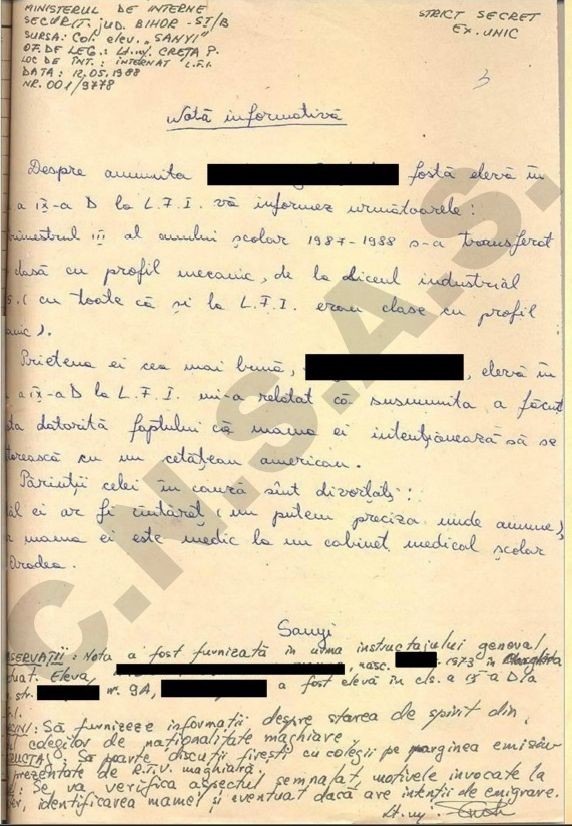 MINISTERUL DE INTERNE
SECURIT. jUD. BIHOR - SI/B
SURSA: Col. elev. „SANYI"
OF. DE LEG.: Lt. mj. CREȚA P.
LOC DE ÎNT.: INTERNAT L.F.I.
DATA: 12.05.1988
NR. 001/9778
STRICT SECRET
EX. UNIC
3
Notă informativă
Despre anumita fostă elevă în
a IX-a D la L.F.I. vă informez următoarele:
rimestrul III al anului școlar 1987-1988 s-a transferat
clasă cu profil mecanic, de la liceul industrial
s. (cu toate că și la L.F.I. erau clase cu profil
anic).
Prietena ei cea mai bună, , elevă în
a IX-a D la L.F.I. mi-a relatat că susnumita a făcut
sta datorită faptului că mama ei intenționează să se
torească cu un cetățean american.
Părinții celei în cauză sînt divorțați:
ăl ei ar fi cîntăreț (nu putem preciza unde anume),
r mama ei este medic la un cabinet medical școlar
Oradea.
Sanyi
SERVAȚII: Nota a fost furnizată în urma instructajului general
uat. Eleva , născ. 1973 în
str. nr. 9A, a fost elevă în cls. a IX-a D la
.I.
RCINI: Să furnizeze informații despre starea de spirit din
ul colegilor de naționalitate maghiară.
RUCTAJ: Să poarte discuții firești cu colegii pe marginea emisiu
prezentate de R.T.V. maghiară.
: Se va verifica aspectul semnalat, motivele invocate la
fer, identificarea mamei și eventual dacă are intenții de emigrare.
Lt. mj.
C.N.S.A.S.